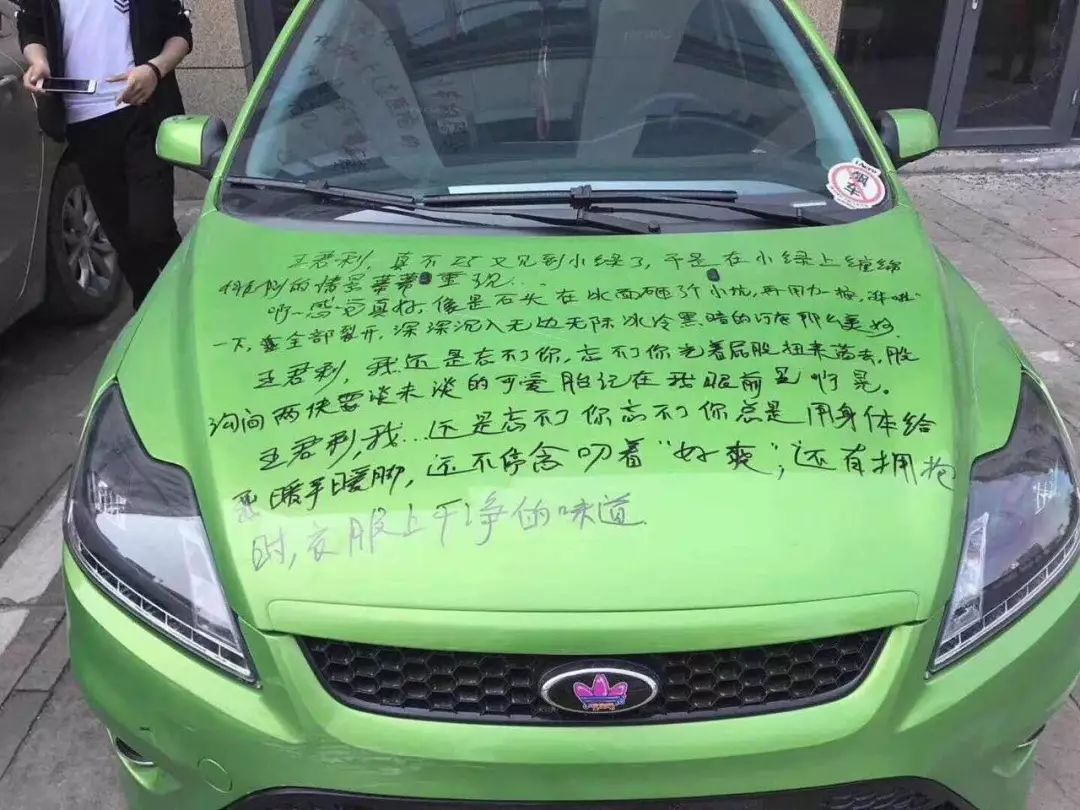 飙车
王君利，真不巧又见到小绿了，于是在小绿上缠绵
的情景 重现...
啊~感觉真好，像是石头在冰面砸了个小坑，再用力
一下，全部裂开，深深沉入无边无际冰冷黑暗的 那么美好
王君利，我还是忘不了你，忘不了你光着屁股扭来荡去，股
沟间两块要谈未谈的可爱胎记在我眼前晃啊晃。
王君利，我...还是忘不了你忘不了你总是用身体给
我暖手暖脚，还不停念叨着“好爽”，还有拥抱
时，衣服上干净的味道